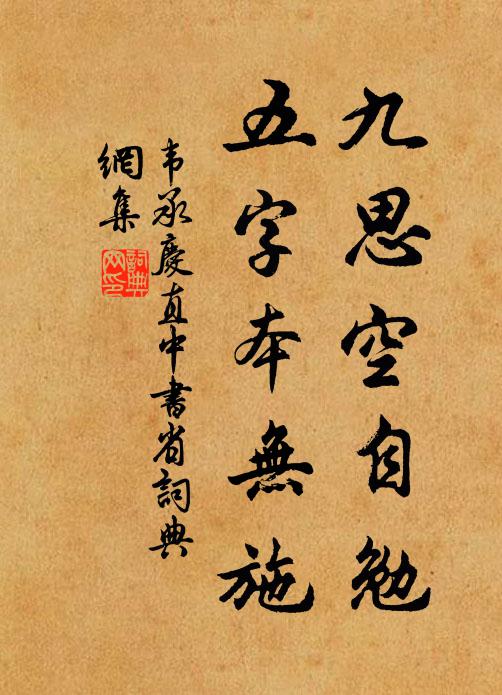 九思空自勉
五字本無施
韦承慶直中書省詞典
網集
詞典
网印